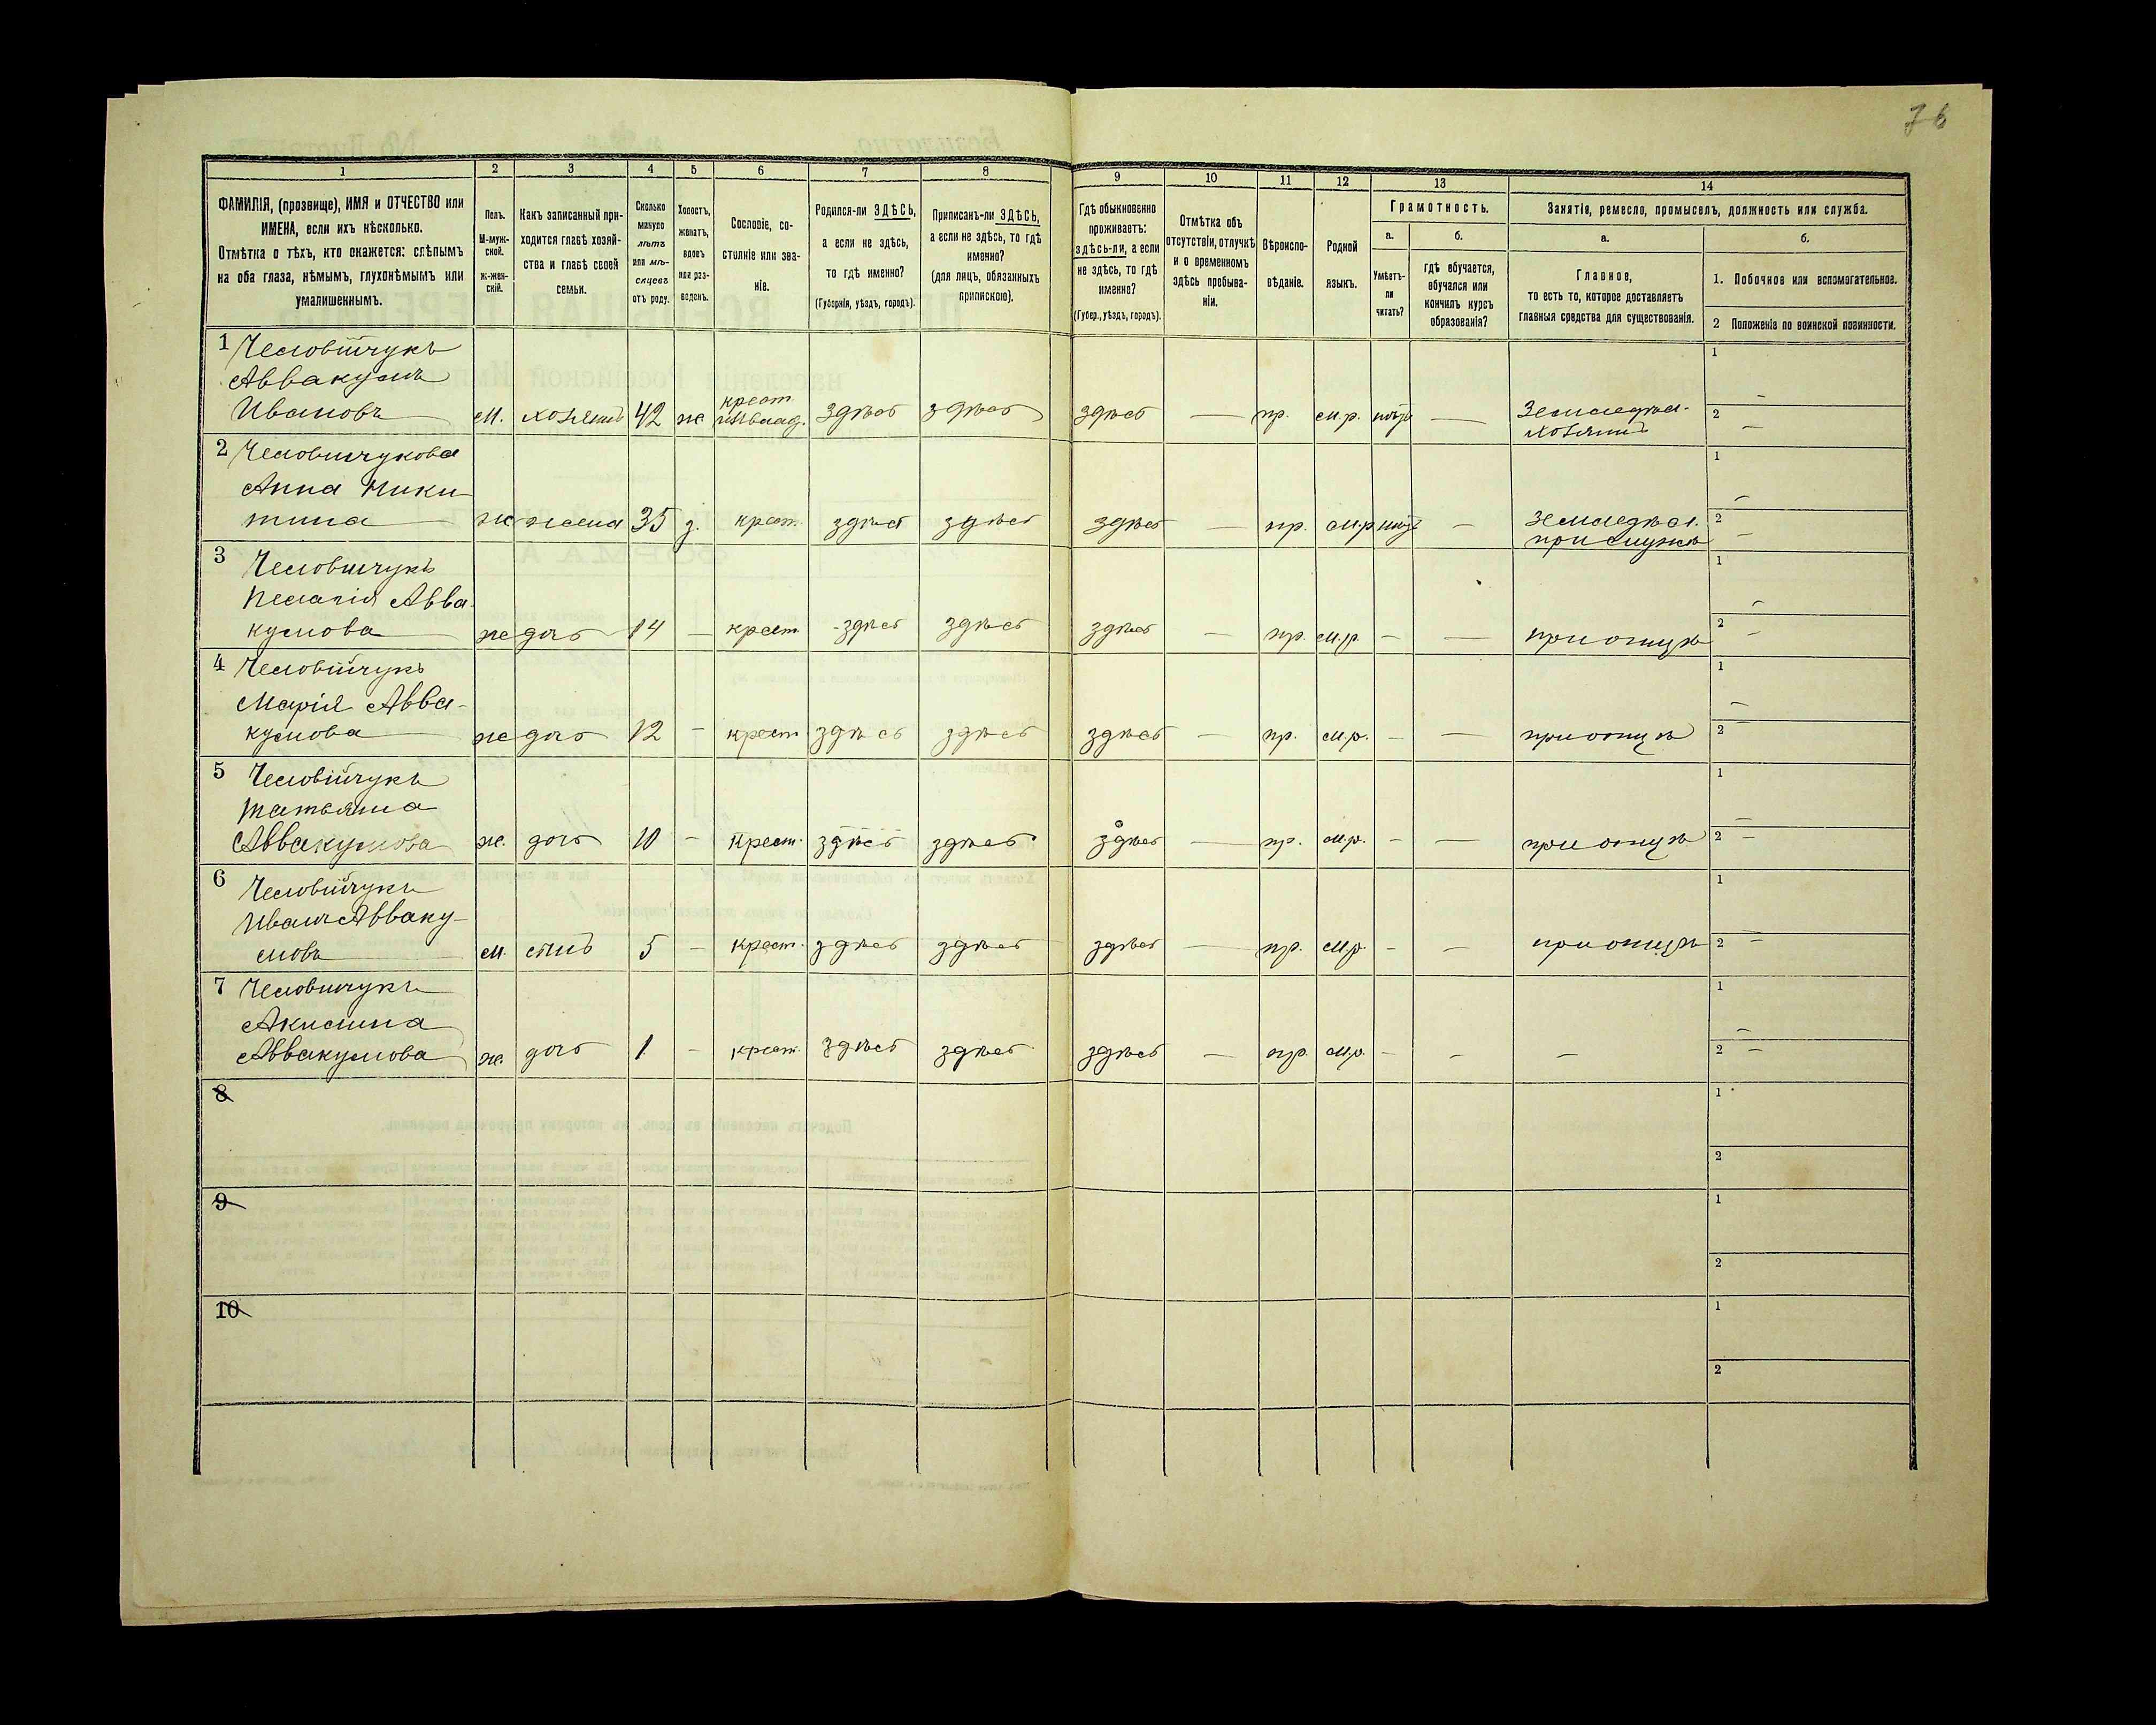 76
1 2 3 4 5 6 7 8 9 10 11 12 13 14
ФАМИЛІЯ, (прозвище), ИМЯ и ОТЧЕСТВО или
ИМЕНА, если ихъ нѣсколько.
Отмѣтка о тѣхъ, кто окажется: слѣпымъ
на оба глаза, нѣмымъ, глухонѣмымъ или
умалишеннымъ.
Полъ.
М-муж-
ской.
ж-жен-
скій.
Какъ записанный при-
ходится главѣ хозяй-
ства и главѣ своей
семьи.
Сколько
минуло
лѣтъ
или мѣ-
сяцевъ
отъ роду.
Холостъ,
женатъ,
вдовъ
или раз-
веденъ.
Сословіе, со-
стояніе или зва-
ніе.
Родился-ли ЗДѢСЬ,
а если не здѣсь,
то гдѣ именно?
(Губернія, уѣздъ, городъ).
Приписанъ-ли ЗДѢСЬ,
а если не здѣсь, то гдѣ
именно?
(для лицъ, обязанныхъ
припискою).
Гдѣ обыкновенно
проживаетъ:
здѣсь-ли, а если
не здѣсь, то гдѣ
именно?
(Губер., уѣздъ, городъ).
Отмѣтка объ
отсутствіи, отлучкѣ
и о временномъ
здѣсь пребыва-
ніи.
Вѣроиспо-
вѣданіе.
Родной
языкъ.
Грамотность.
а.
Умѣетъ-
ли
читать?
б.
гдѣ обучается,
обучался или
кончилъ курсъ
образованія?
Занятіе, ремесло, промыселъ, должность или служба.
а.
Главное,
то есть то, которое доставляетъ
главныя средства для существованія.
б.
1. Побочное или вспомогательное.
2 Положеніе по воинской повинности.
1 Человійчукъ
Аввакумъ
Ивановъ м. хозяинъ 42 ж крест. здѣсь здѣсь здѣсь — пр. м.р. нѣтъ — Земледѣл.
хозяинъ
1 —
2 —
2 Человичукова
Анна Ники-
тина ж жена 35 з. крест. здѣсь здѣсь здѣсь — пр. м.р нѣтъ — земледѣл.
при мужѣ
1 —
2 —
3 Человичукъ
Пелагія Авва-
кумова ж дочь 14 — крест. здѣсь здѣсь здѣсь — пр. м.р — — при отцѣ
1 —
2 —
4 Человійчукъ
Марія Авва-
кумова ж дочь 12 — крест здѣсь здѣсь здѣсь — пр. м.р. — — при отцѣ
1 —
2 —
5 Человійчукъ
Татьяна
Аввакумова ж. дочь 10 — крест. здѣсь здѣсь здѣсь — пр. м.р. — — при отцѣ
1 —
2 —
6 Человійчукъ
Иванъ Авваку-
мовъ м. сынъ 5 — крест. здѣсь здѣсь здѣсь — пр. м.р. — — при отцѣ
1
2 —
7 Человичукъ
Акилина
Аввакумова ж. дочь 1 — крест. здѣсь здѣсь здѣсь — пр. м.р. — — —
1 —
2 —
8
1
2
9
1
2
10
1
2